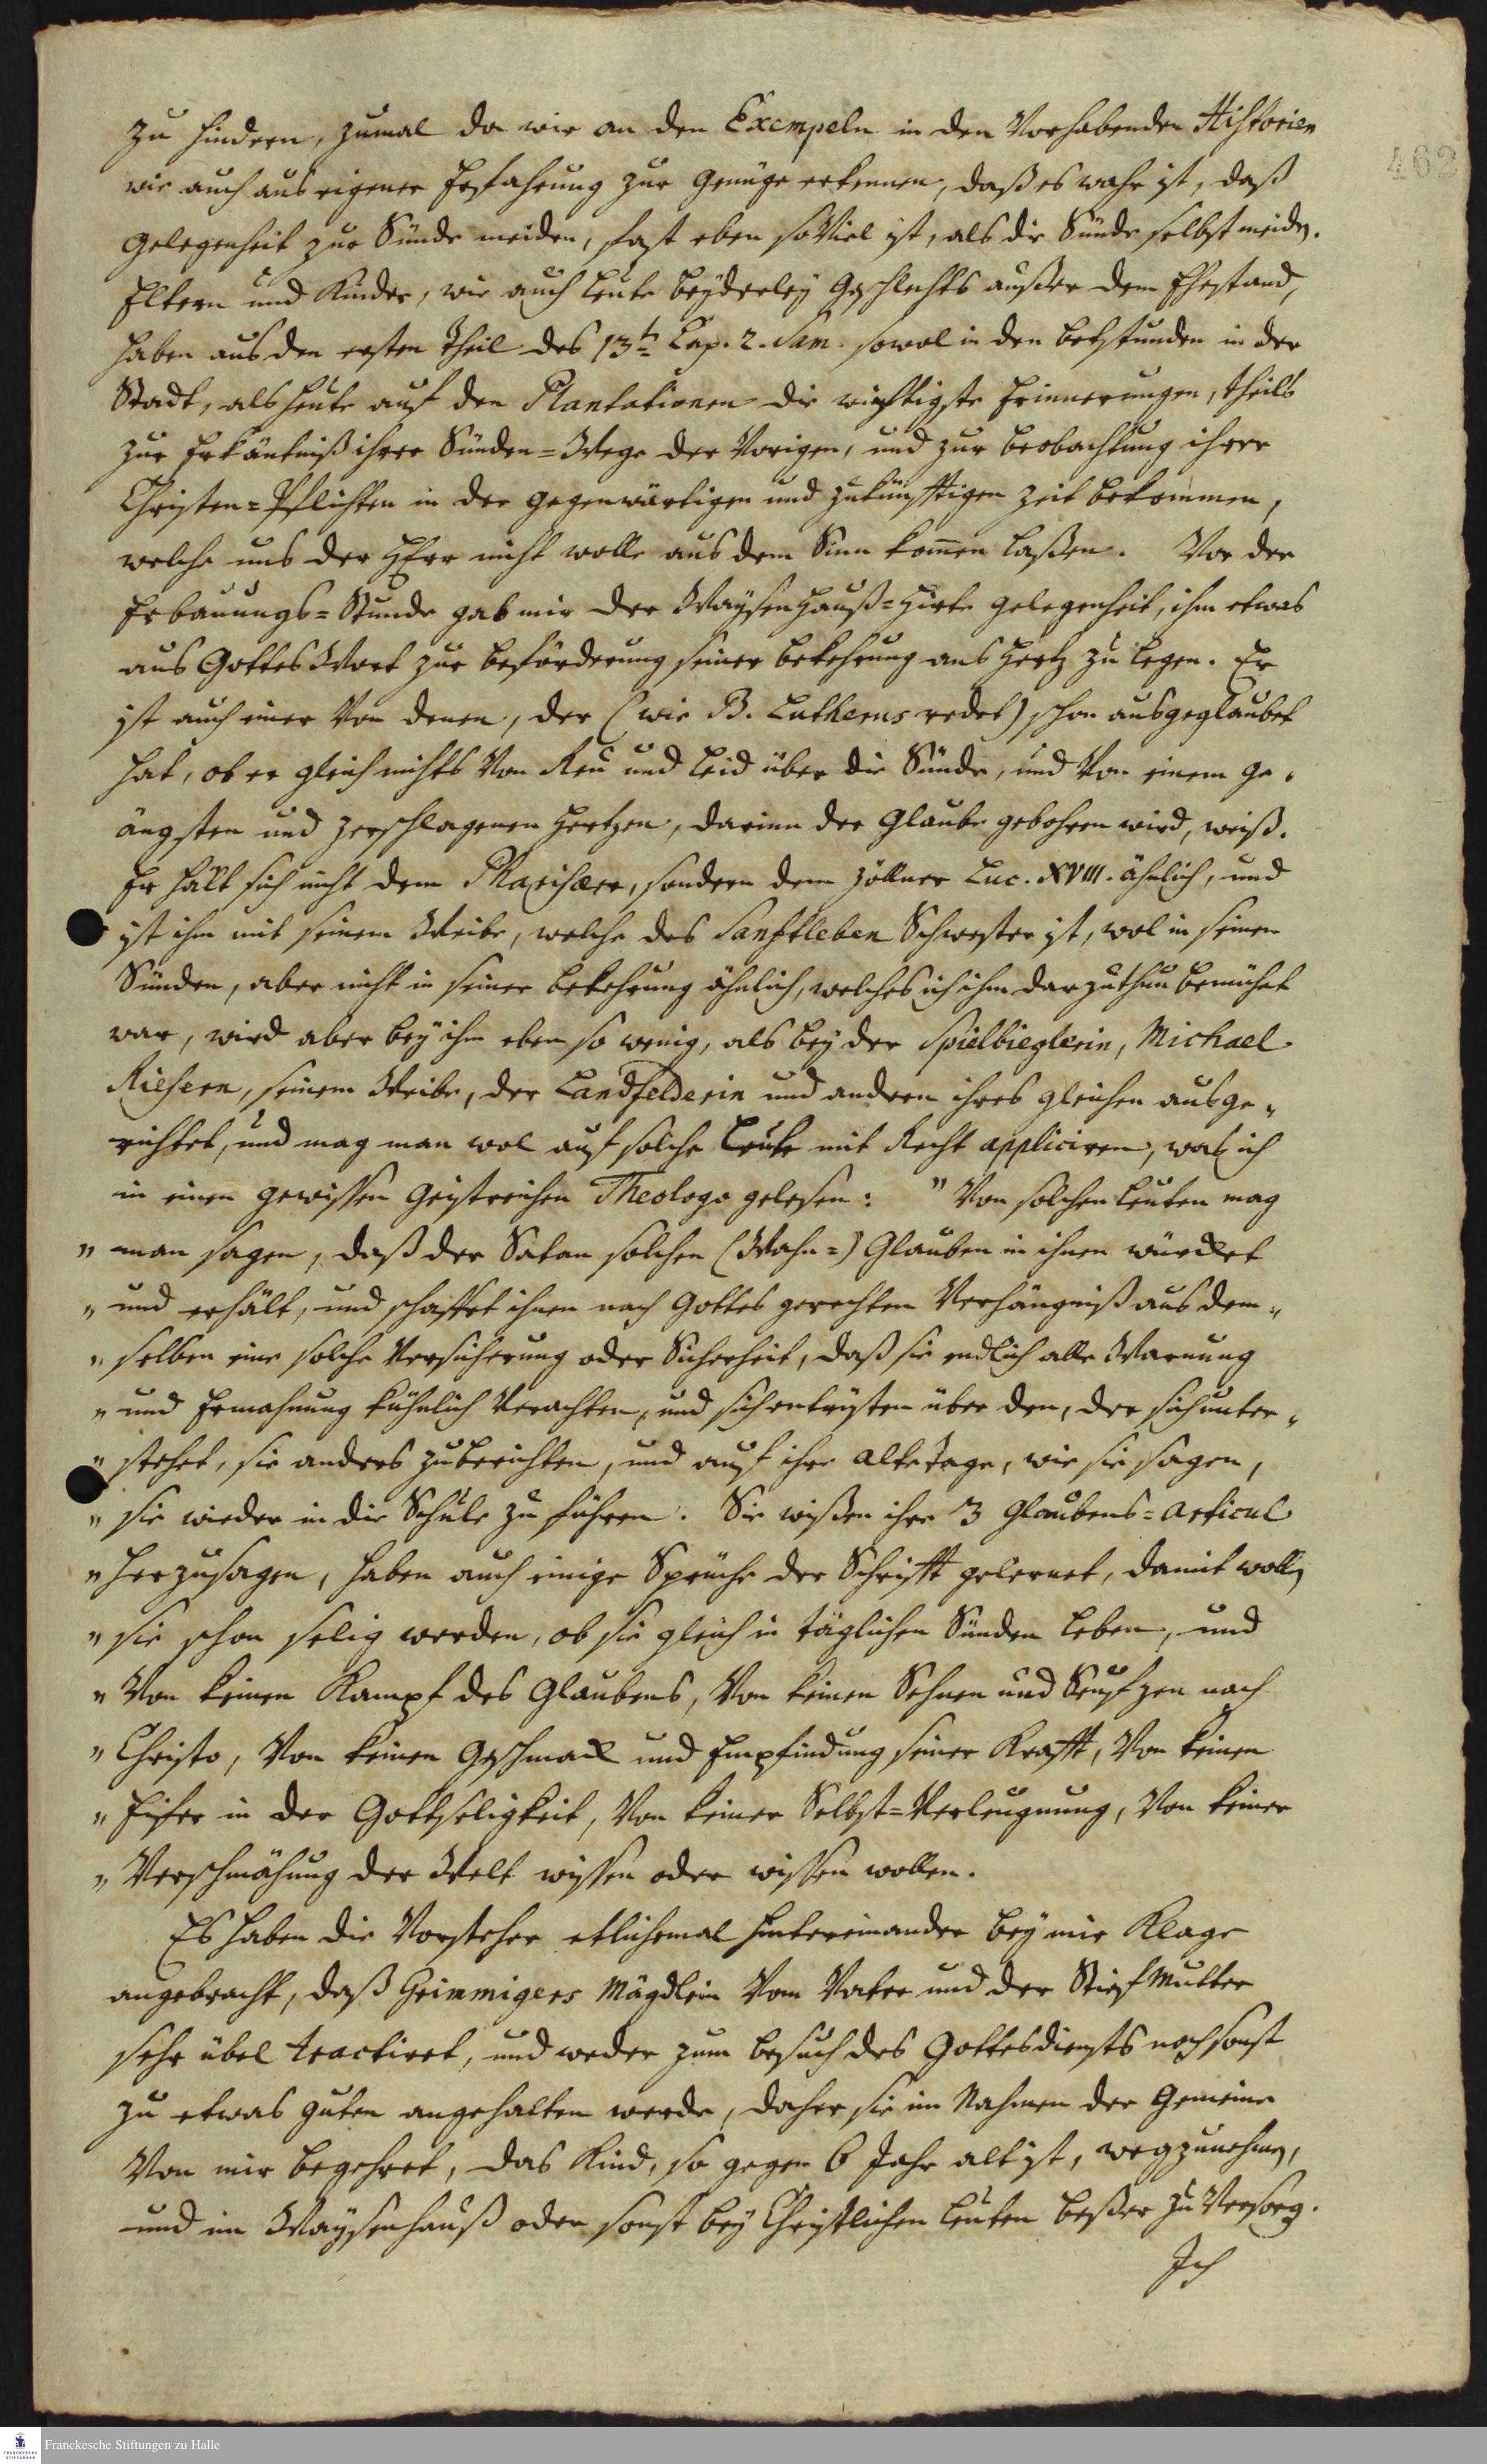 462
zu hindern, zumal da wir an den Exempeln in den Vorhabenden Historien
wie auch aus eigener Erfahrung zur Genüge erkennen, daß es wahr ist, daß
Gelegenheit zur Sünde meiden, fast eben so Viel ist, als die Sünde selbst meiden.
Eltern und Kinder, wie auch Leute beyderley Geschlechts außer dem Ehestand,
haben aus den ersten Theil des 13t. Cap. 2. Sam. sowol in den Betstunden in der
Stadt, als heute auf den Plantationen die wichtigste Erinnerungen, theils
zur Erkäntniß ihrer Sünden=Wege der Vorigen, und zur Beobachtung ihrer
Christen=Pflichten in der gegenwärtigen und zukünfftigen Zeit bekommen,
welche uns der HErr nicht wolle aus dem Sinn kommen laßen. Vor der
Erbauungs=Stunde gab mir der WaysenHauß=Hirte Gelegenheit, ihm etwas
aus Gottes Wort zur Beförderung seiner Bekehrung ans Hertz zu legen. Er
ist auch einer Von denen, der (wie B. Lutherus redet) schon ausgeglaubet
hat, ob er gleich nichts Von Reu und Leid über die Sünde, und Von einem ge-
ängsten und zerschlagenen Hertzen, darinn der Glaube gebohren wird, weiß.
Er hält sich nicht dem Pharisæer, sondern dem Zöllner Luc. XVIII. ähnlich, und
ist ihm mit seinem Weibe, welche des Sanftleben Schwester ist, wol in seinen
Sünden, aber nicht in seiner Bekehrung ähnlich, welches ich ihm darzuthun bemühet
war, wird aber bey ihm eben so wenig, als bey der Spielbieglerin, Michael
Riesern, seinem Weibe, der Landfelderin und andern ihres gleichen ausge-
richtet, und mag man wol auf solche Leute mit Recht appliciren, was ich
in einen gewissen Geistreichen Theologo gelesen: " Von solchen Leuten mag
" man sagen, daß der Satan solchen (Wahn=) Glauben in ihnen würcket
" und erhält, und schaffet ihnen nach Gottes gerechten Verhängniß aus dem-
" selben eine solche Versicherung oder Sicherheit, daß sie endlich alle Warnung
" und Ermahnung kühnlich Verachten, und sich entrüsten über den, der sich unter-
" stehet, sie anders zuberichten, und auf ihre alte Tage, wie sie sagen,
" sie wieder in die Schule zu führen. Sie wißen ihre 3 Glaubens=Articul
" herzusagen, haben auch einige Sprüche der Schrifft gelernet, damit wollen
" sie schon selig werden, ob sie gleich in täglichen Sünden leben, und
" Von keinen Kampf des Glaubens, Von keinen Sehnen und Seufzen nach
" Christo, Von keinen Geschmack und Empfindung seiner Krafft, Von keinen
" Eifer in der Gottseligkeit, Von keiner Selbst=Verleugnung, Von keiner
" Verschmähung der Welt wissen oder wissen wollen.
Es haben die Vorsteher etlichemal hintereinander bey mir Klage
angebracht, daß Grimmigers Mägdlein Vom Vater und der StiefMutter
sehr übel tractiret, und weder zum Besuch des Gottesdiensts noch sonst
zu etwas guten angehalten werde, daher sie im Nahmen der Gemeine
Von mir begehret, das Kind, so gegen 6 Jahr alt ist, wegzunehmen,
und im Waysenhauß oder sonst bey Christlichen Leuten beßer zu Versorg.
Ich
Franckesche Stiftungen zu Halle